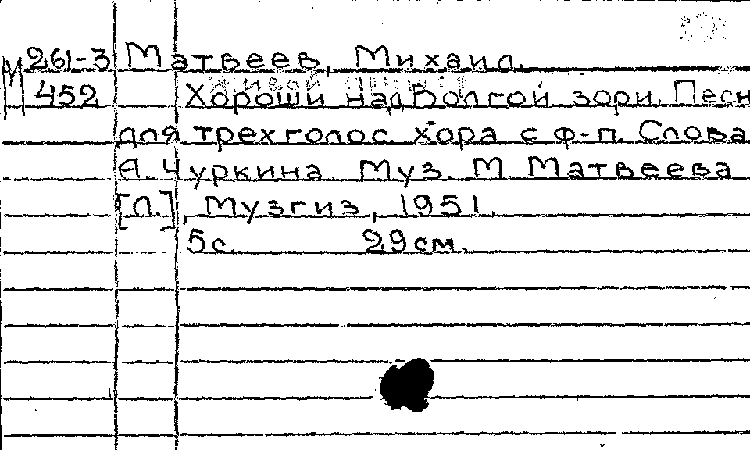 261-3 Матвеев, Михаил.
М 452 Хороши над Волгой зори. Песн
для трехголос. хора с ф-п. Слова
А. Чуркина. Муз. М. Матвеева
[Л.], Музгиз, 1951.
5с. 29см.